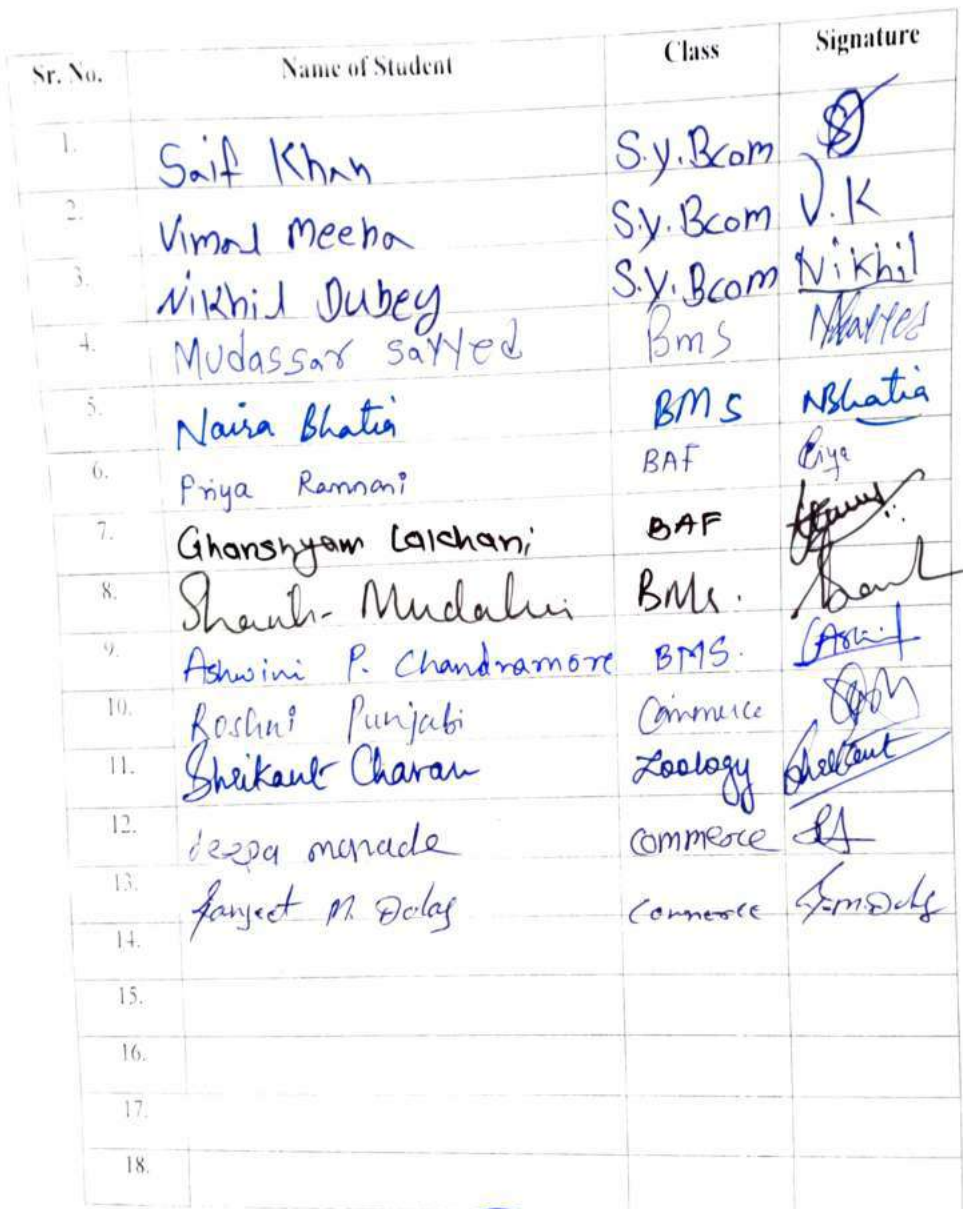 Sr. No. Name of Student Class Signature
1. Saif Khan S.y.Bcom
2. Vimal Meena S.y.Bcom V.K
3. Nikhil Dubey S.y.Bcom Nikhil
4. Mudassar sayyed Bms
5. Naira Bhatia BMS NBhatia
6. Priya Ramnani BAF Priya
7. Ghanshyam Lalchani BAF
8. BMS.
9. Ashwini P. Chandramore BMS.
10. Roshni Punjabi Commerce
11. Shrikant Chavan Zoology
12. deepa commerce
13. M. commerce
14.
15.
16.
17.
18.